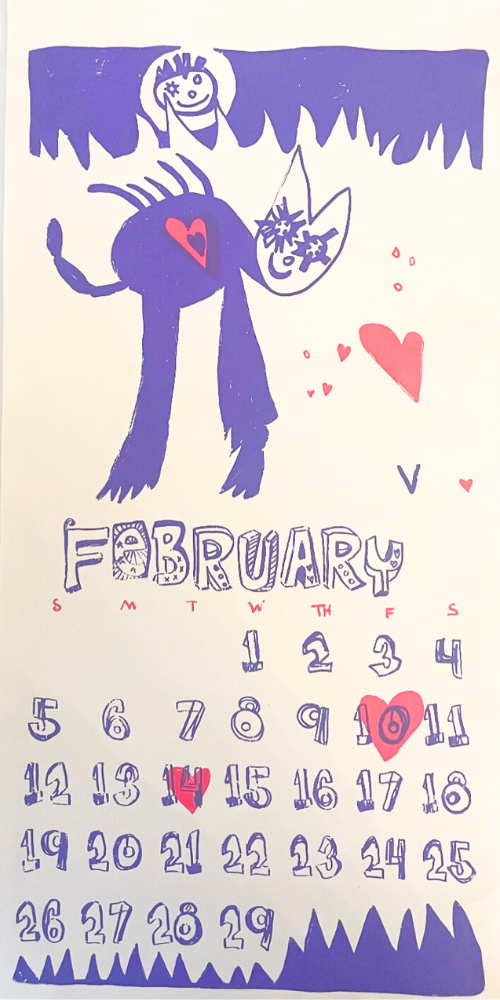 V
FEBRUARY
S M T W TH F S
1 2 3 4
5 6 7 8 9 10 11
12 13 14 15 16 17 18
19 20 21 22 23 24 25
26 27 28 29